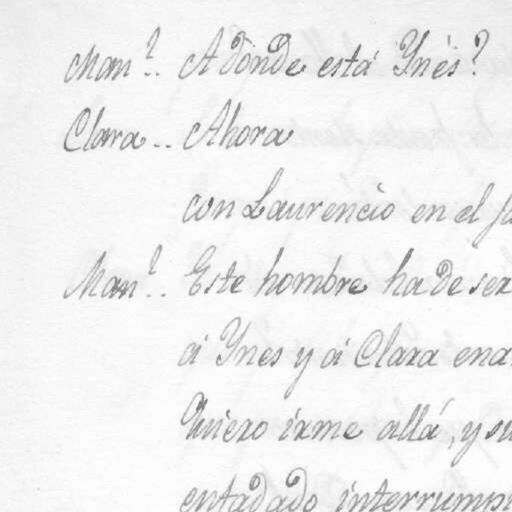 Man?.. A dònde està Ynés?
Clara.. Ahora
con Laurencio en el
Man?.. Este hombre ha de ser
á Ynes y á Clara
Quiero irme allá, y
entadado